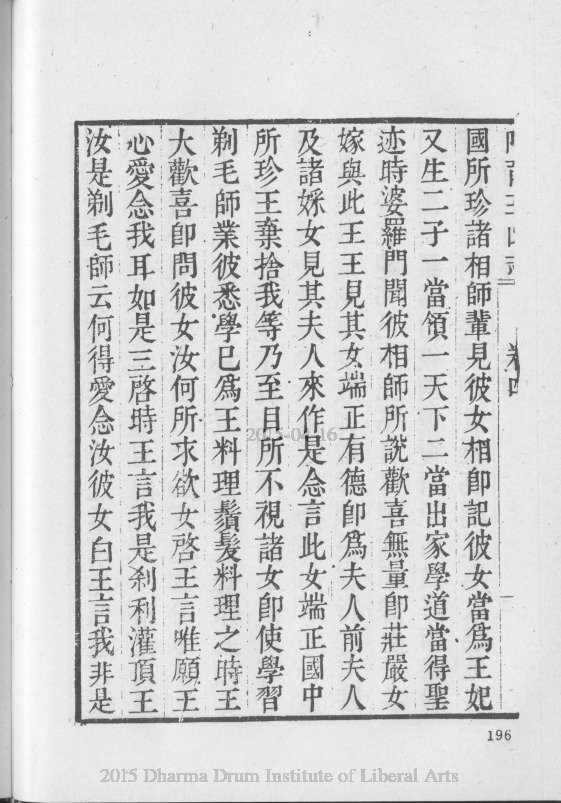 國所珍諸相師輩見彼女相卽記彼女當爲王妃
又生二子一當領一天下二當出家學道當得聖
迹時婆羅門聞彼相師所說歡喜無量卽莊嚴女
嫁與此王王見其女端正有德卽爲夫人前夫人
及諸婇女見其夫人來作是念言此女端正國中
所珍王棄捨我等乃至目所不視諸女卽使學習
剃毛師業彼悉學已爲王料理鬚髮料理之時王
大歡喜卽問彼女汝何所求欲女啓王言唯願王
心愛念我耳如是三啓時王言我是刹利灌頂王
汝是剃毛師云何得愛念汝彼女白王言我非是
196
2015-04-16
2015 Dharma Drum Institute of Liberal Arts